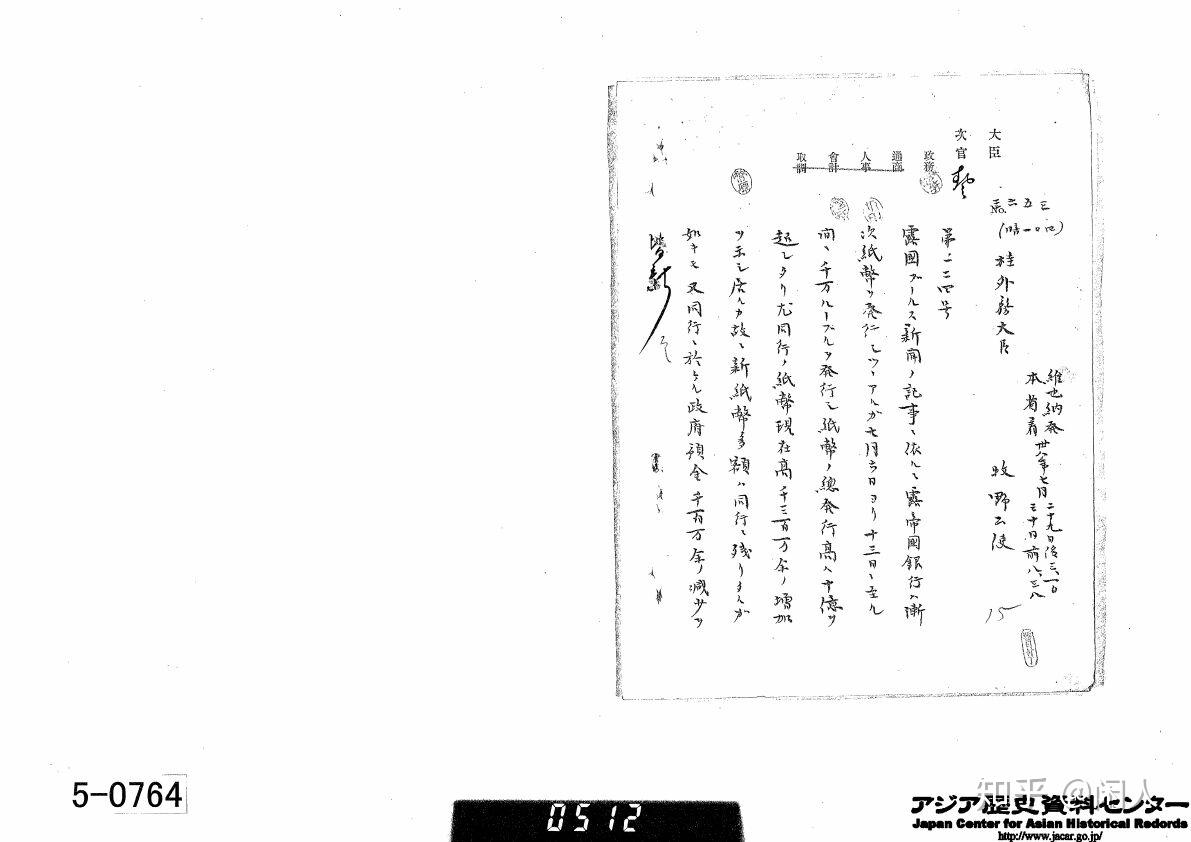 大臣
次官
政務
通商
人事
會計
取調
三五
(暗一〇〇)
桂外務大臣
維也納発 卅八年七月二十九日後三、一〇
本省着 三十日前八、三八
牧野公使
15
第二二四号
露国ブールス新聞ノ記事ニ依レハ露帝国銀行ハ漸
次紙幣ヲ発行シツヽアルガ七月六日ヨリ十三日ニ至ル
間ニ千万ルーブルヲ発行シ紙幣ノ総発行高ハ十億ヲ
超シタリ尤同行ノ紙幣現在高千三百万余ノ増加
ヲ示シ居ルカ故ニ新紙幣多額ハ同行ニ残リ
如キモ又同行ニ於ケル政府預金千百万余ノ減少ヲ
5-0764
0512
知乎 @闲人
アジア歴史資料センター
Japan Center for Asian Historical Records
http://www.jacar.go.jp/